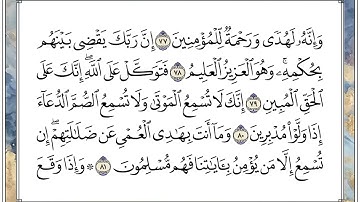 وَإِنَّهُۥ لَهُدٗى وَرَحۡمَةٞ لِّلۡمُؤۡمِنِينَ ٧٧ إِنَّ رَبَّكَ يَقۡضِي بَيۡنَهُم
بِحُكۡمِهِۦۚ وَهُوَ ٱلۡعَزِيزُ ٱلۡعَلِيمُ ٧٨ فَتَوَكَّلۡ عَلَى ٱللَّهِۖ إِنَّكَ عَلَى
ٱلۡحَقِّ ٱلۡمُبِينِ ٧٩ إِنَّكَ لَا تُسۡمِعُ ٱلۡمَوۡتَىٰ وَلَا تُسۡمِعُ ٱلصُّمَّ ٱلدُّعَآءَ
إِذَا وَلَّوۡاْ مُدۡبِرِينَ ٨٠ وَمَآ أَنتَ بِهَٰدِي ٱلۡعُمۡيِ عَن ضَلَٰلَتِهِمۡۖ إِن
تُسۡمِعُ إِلَّا مَن يُؤۡمِنُ بِـَٔايَٰتِنَا فَهُم مُّسۡلِمُونَ ٨١ ۞ وَإِذَا وَقَعَ